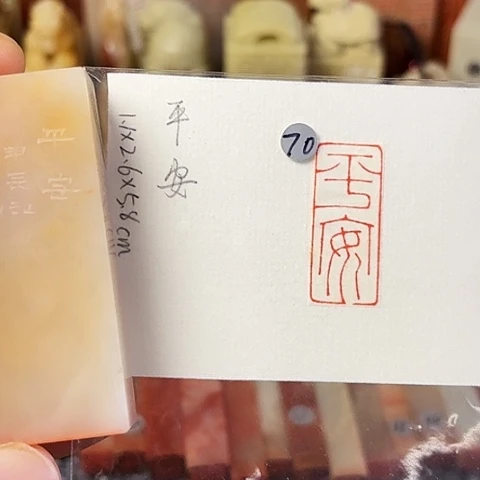 平安
1.1x2.6x5.8cm
70
平安